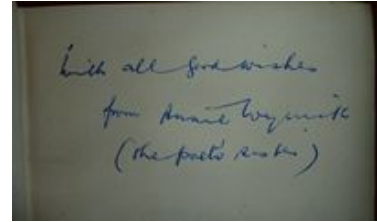 with all good wishes
from Annie
(the poet's sister)